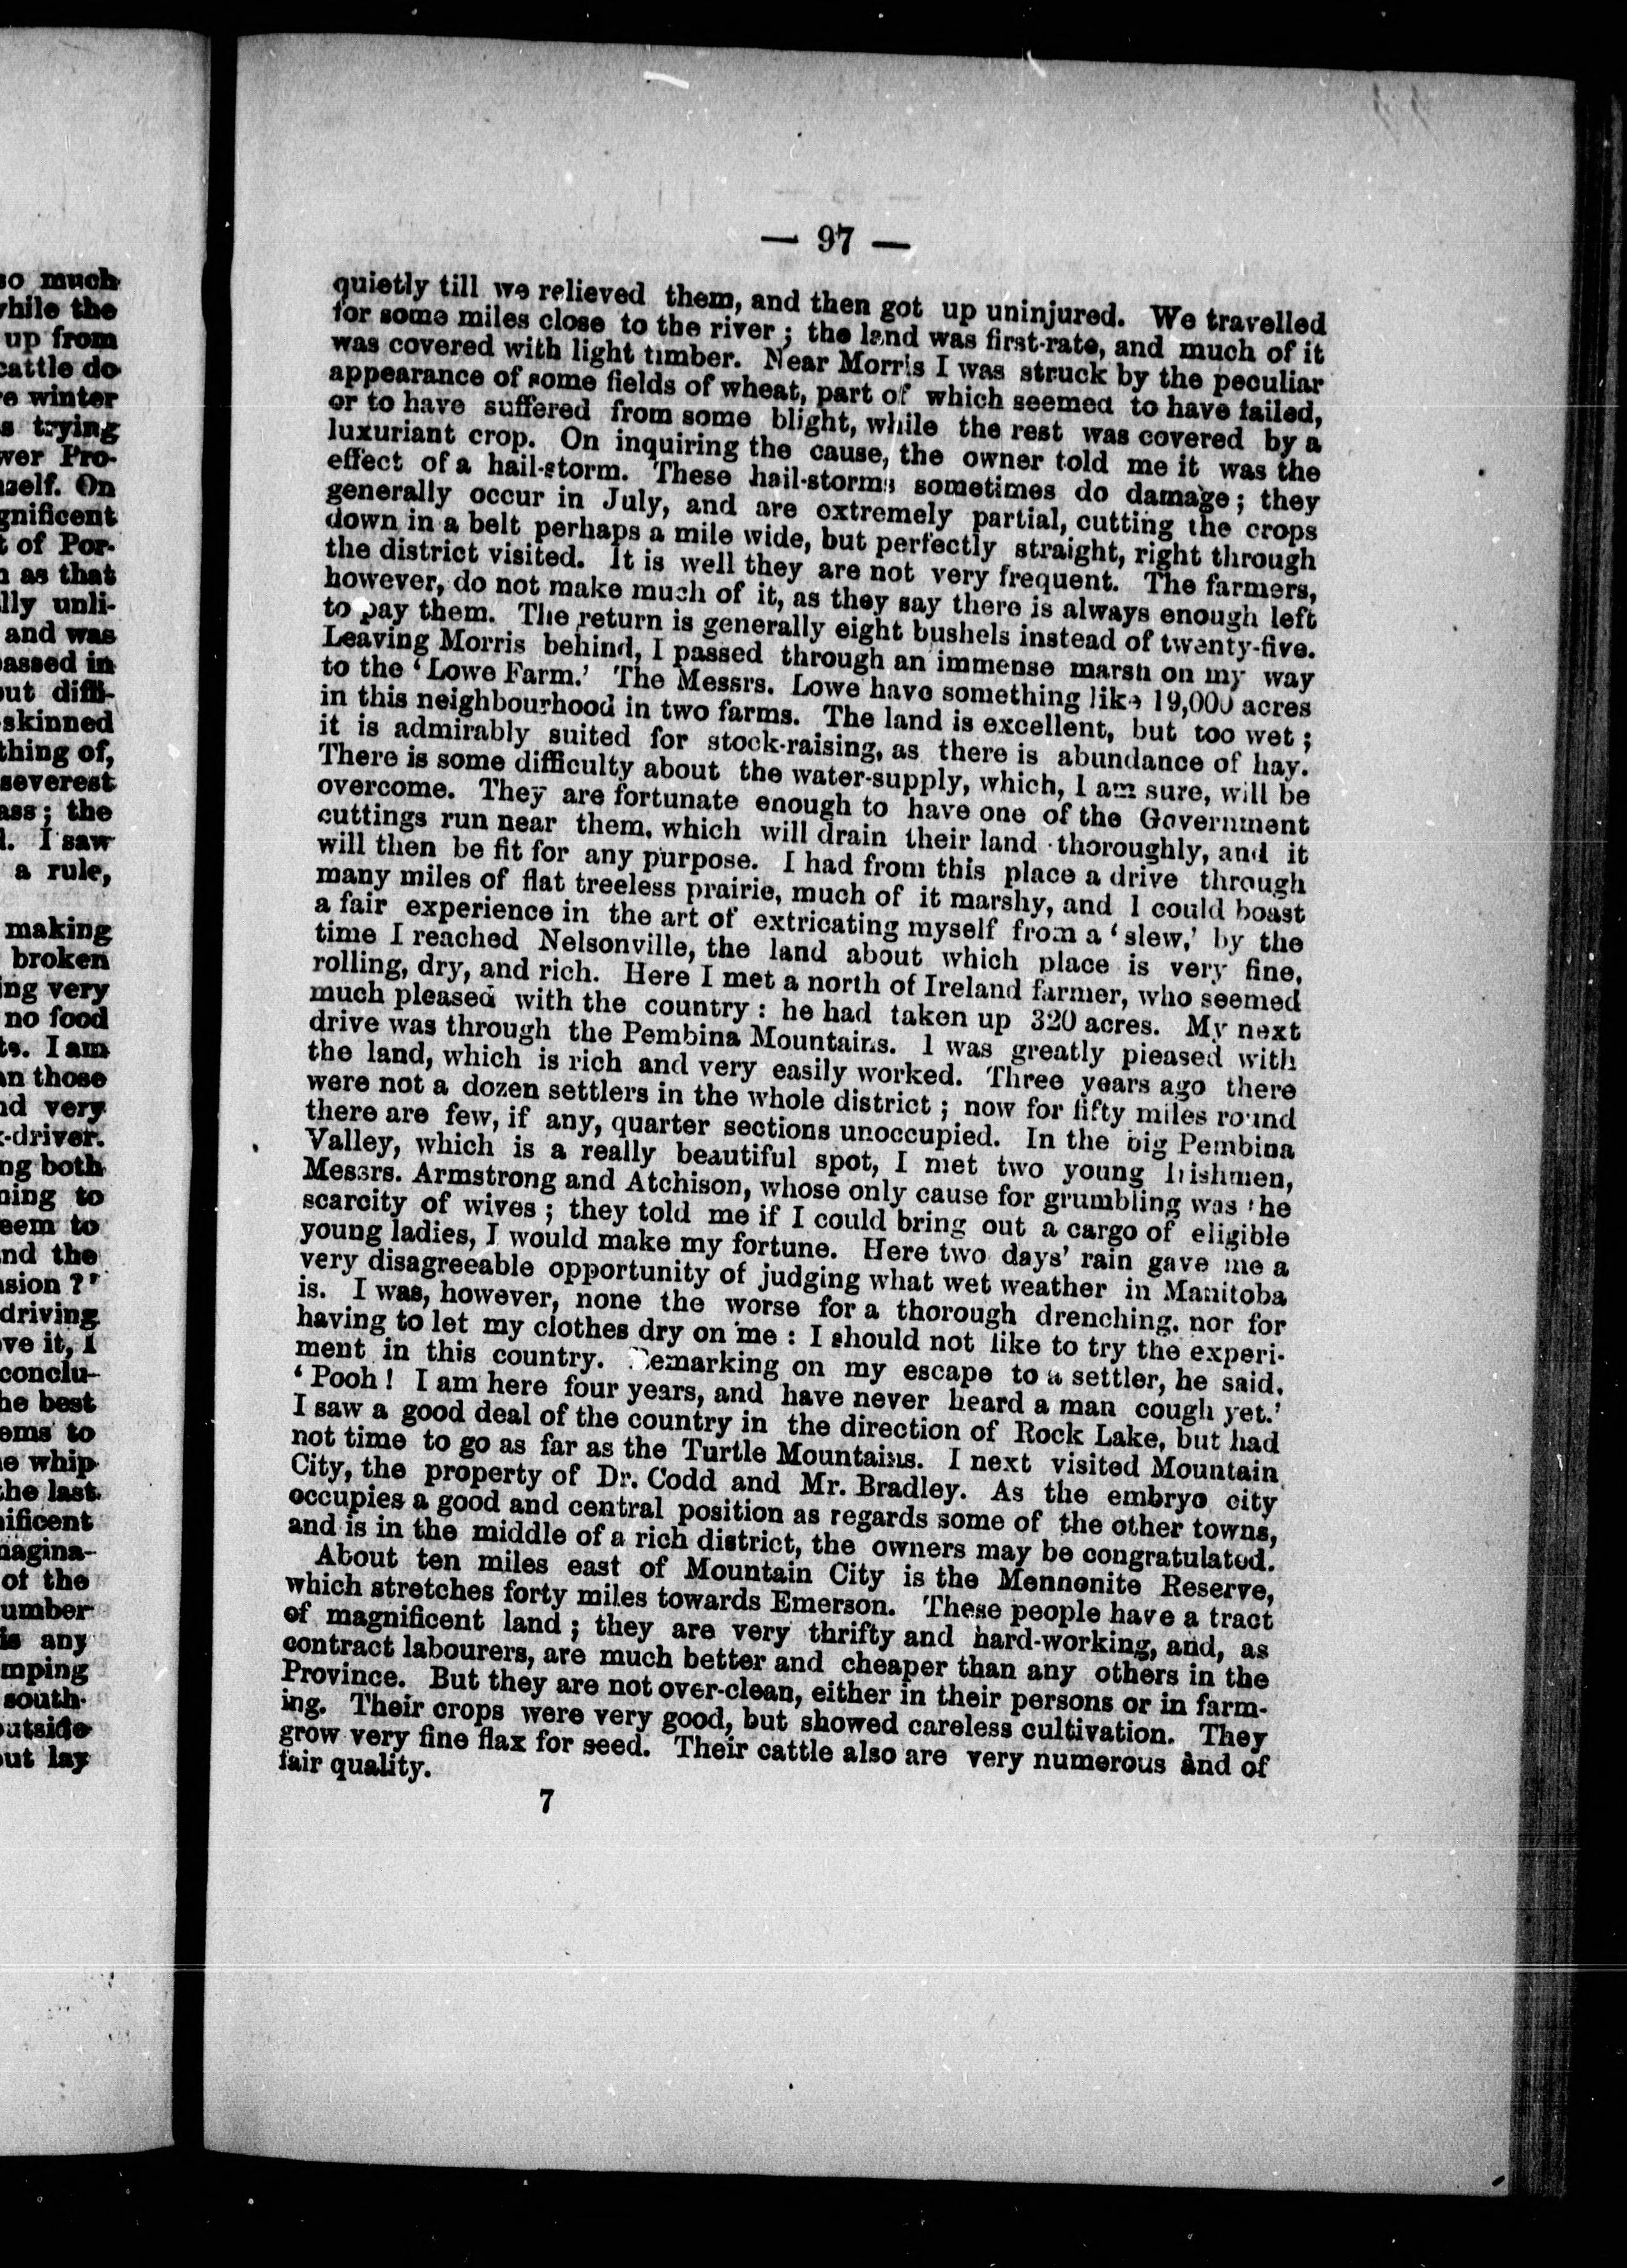 so much
while the
up from
cattle do
winter
trying
Pro-
On
of Por-
as that
unli-
and was
passed in
diffi-
skinned
thing of,
severest
the
I saw
a rule,
making
broken
very
no food
I am
those
very
-driver.
both
to
to
the
driving
it, I
conclu-
best
to
whip
the last
of the
any
south-
outside
lay
— 97 —
quietly till we relieved them, and then got up uninjured. We travelled
for some miles close to the river; the land was first-rate, and much of it
was covered with light timber. Near Morris I was struck by the peculiar
appearance of some fields of wheat, part of which seemed to have failed,
or to have suffered from some blight, while the rest was covered by a
luxuriant crop. On inquiring the cause, the owner told me it was the
effect of a hail-storm. These hail-storms sometimes do damage; they
generally occur in July, and are extremely partial, cutting the crops
down in a belt perhaps a mile wide, but perfectly straight, right through
the district visited. It is well they are not very frequent. The farmers,
however, do not make much of it, as they say there is always enough left
to pay them. The return is generally eight bushels instead of twenty-five.
Leaving Morris behind, I passed through an immense marsh on my way
to the ‘Lowe Farm.’ The Messrs. Lowe have something like 19,000 acres
in this neighbourhood in two farms. The land is excellent, but too wet;
it is admirably suited for stock-raising, as there is abundance of hay.
There is some difficulty about the water-supply, which, I am sure, will be
overcome. They are fortunate enough to have one of the Government
cuttings run near them, which will drain their land thoroughly, and it
will then be fit for any purpose. I had from this place a drive through
many miles of flat treeless prairie, much of it marshy, and I could boast
a fair experience in the art of extricating myself from a ‘slew,’ by the
time I reached Nelsonville, the land about which place is very fine,
rolling, dry, and rich. Here I met a north of Ireland farmer, who seemed
much pleased with the country: he had taken up 320 acres. My next
drive was through the Pembina Mountains. I was greatly pleased with
the land, which is rich and very easily worked. Three years ago there
were not a dozen settlers in the whole district; now for fifty miles round
there are few, if any, quarter sections unoccupied. In the big Pembina
Valley, which is a really beautiful spot, I met two young Irishmen,
Messrs. Armstrong and Atchison, whose only cause for grumbling was the
scarcity of wives; they told me if I could bring out a cargo of eligible
young ladies, I would make my fortune. Here two days’ rain gave me a
very disagreeable opportunity of judging what wet weather in Manitoba
is. I was, however, none the worse for a thorough drenching, nor for
having to let my clothes dry on me: I should not like to try the experi-
ment in this country. Remarking on my escape to a settler, he said,
‘Pooh! I am here four years, and have never heard a man cough yet.’
I saw a good deal of the country in the direction of Rock Lake, but had
not time to go as far as the Turtle Mountains. I next visited Mountain
City, the property of Dr. Codd and Mr. Bradley. As the embryo city
occupies a good and central position as regards some of the other towns,
and is in the middle of a rich district, the owners may be congratulated.
About ten miles east of Mountain City is the Mennonite Reserve,
which stretches forty miles towards Emerson. These people have a tract
of magnificent land; they are very thrifty and hard-working, and, as
contract labourers, are much better and cheaper than any others in the
Province. But they are not over-clean, either in their persons or in farm-
ing. Their crops were very good, but showed careless cultivation. They
grow very fine flax for seed. Their cattle also are very numerous and of
fair quality.
7